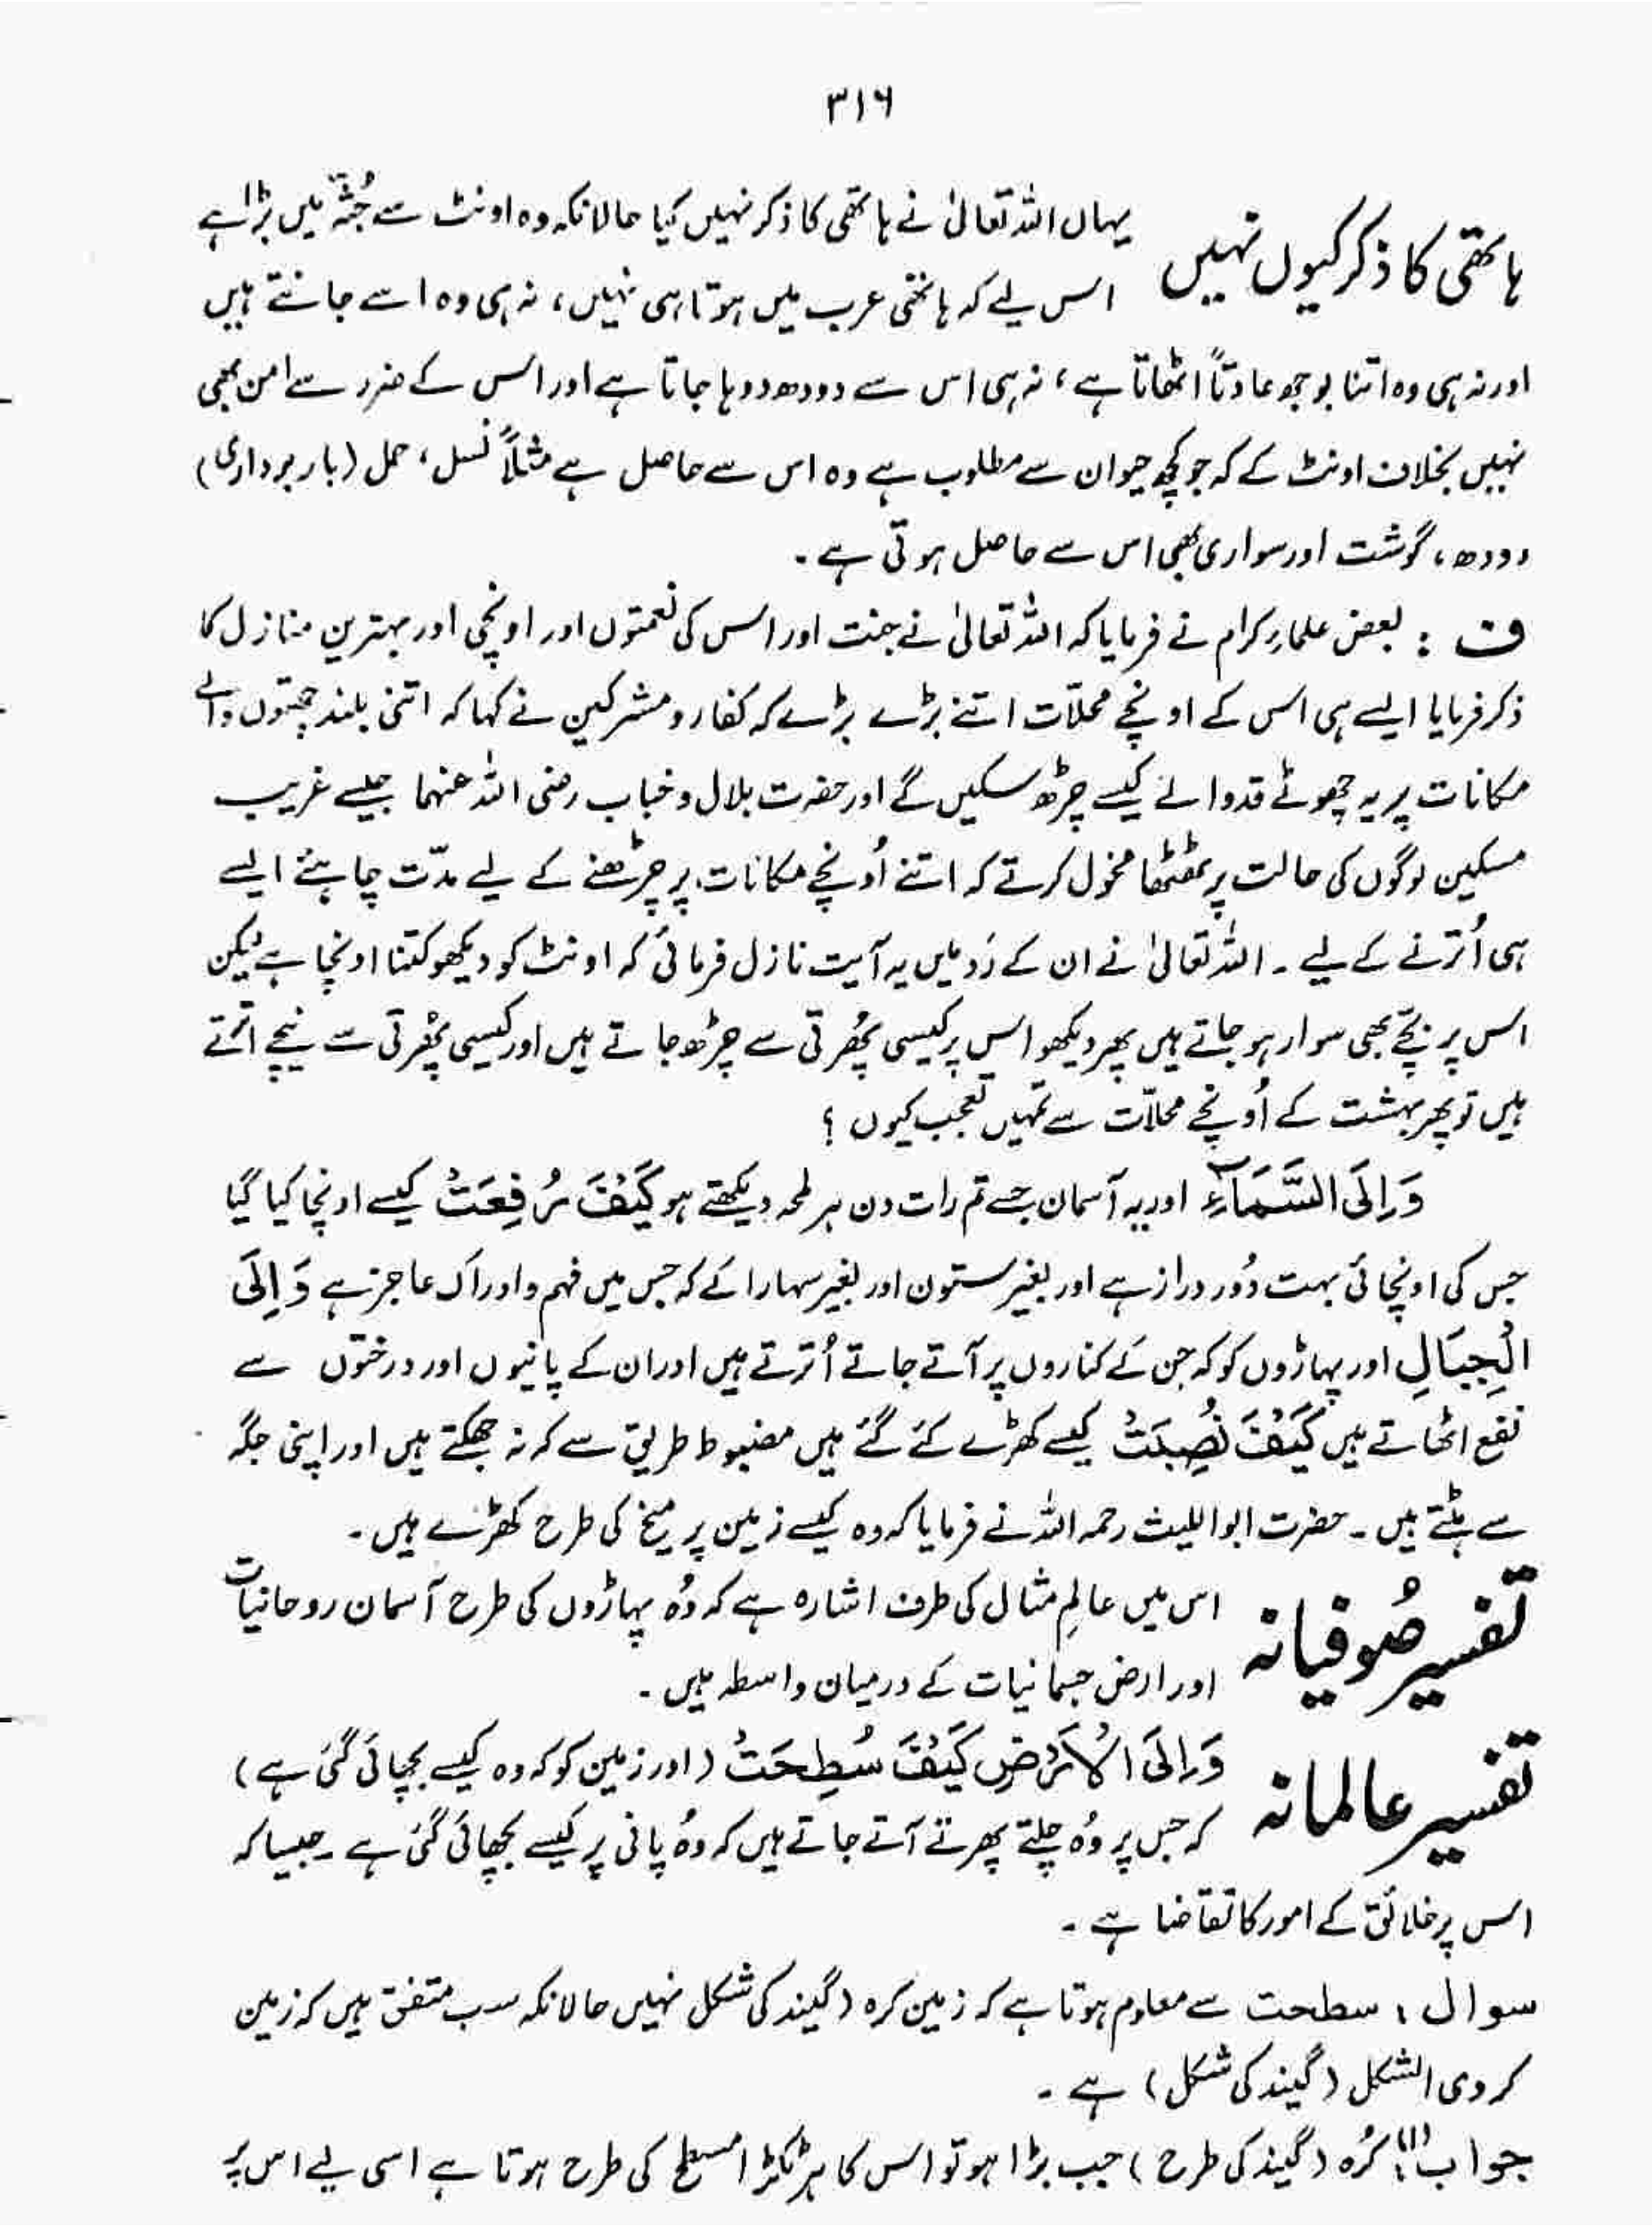 ۳۱۶
ہاتھی کا ذکر کیوں نہیں
یہاں اللہ تعالیٰ نے ہاتھی کا ذکر نہیں کیا حالانکہ وہ اونٹ سے جُثّہ میں بڑا ہے
اس لیے کہ ہاتھی عرب میں ہوتا ہی نہیں، نہ ہی وہ اسے جانتے ہیں
اور نہ ہی وہ اتنا بوجھ عادتاً اٹھاتا ہے، نہ ہی اس سے دودھ دوہا جاتا ہے اور اس کے ضرر سے امن بھی
نہیں بخلاف اونٹ کے کہ جو کچھ حیوان سے مطلوب ہے وہ اس سے حاصل ہے مثلاً نسل، حمل (باربرداری)
دودھ، گوشت اور سواری بھی اس سے حاصل ہوتی ہے۔
ف : بعض علماءِ کرام نے فرمایا کہ اللہ تعالیٰ نے جنت اور اس کی نعمتوں اور اونچی اور بہترین منازل کا
ذکر فرمایا ایسے ہی اس کے اونچے محلّات اتنے بڑے بڑے کہ کفار و مشرکین نے کہا کہ اتنی بلند چھتوں والے
مکانات پر یہ چھوٹے قد والے کیسے چڑھ سکیں گے اور حضرت بلال و خباب رضی اللہ عنہما جیسے غریب
مسکین لوگوں کی حالت پر ٹھٹھا مخول کرتے کہ اتنے اُونچے مکانات پر چڑھنے کے لیے مدّت چاہئے ایسے
ہی اُترنے کے لیے ۔ اللہ تعالیٰ نے ان کے رَد میں یہ آیت نازل فرمائی کہ اونٹ کو دیکھو کتنا اونچا ہے لیکن
اس پر بچّے بھی سوار ہو جاتے ہیں پھر دیکھو اس پر کیسی پُھرتی سے چڑھ جاتے ہیں اور کیسی پُھرتی سے نیچے اترتے
ہیں تو پھر بہشت کے اُونچے محلّات سے تمہیں تعجب کیوں ؟
وَاِلَی السَّمَآءِ اور یہ آسمان جسے تم رات دن ہر لمحہ دیکھتے ہو کَیْفَ رُفِعَتْ کیسے اونچا کیا گیا
جس کی اونچائی بہت دُور دراز ہے اور بغیر ستون اور بغیر سہارا کے کہ جس میں فہم و ادراک عاجز ہے وَاِلَی
الْجِبَالِ اور پہاڑوں کو کہ جن کے کناروں پر آتے جاتے اُترتے ہیں اور ان کے پانیوں اور درختوں سے
نفع اٹھاتے ہیں کَیْفَ نُصِبَتْ کیسے کھڑے کئے گئے ہیں مضبوط طریق سے کہ نہ جھکتے ہیں اور اپنی جگہ
سے ہٹتے ہیں ۔ حضرت ابو اللیث رحمہ اللہ نے فرمایا کہ وہ کیسے زمین پر میخ کی طرح کھڑے ہیں۔
تفسیر صُوفیانہ
اس میں عالمِ مثال کی طرف اشارہ ہے کہ وُہ پہاڑوں کی طرح آسمان روحانیات
اور ارض جسمانیات کے درمیان واسطہ ہیں۔
تفسیر عالمانہ
وَاِلَی الْاَرْضِ کَیْفَ سُطِحَتْ (اور زمین کو کہ وہ کیسے بچھائی گئی ہے)
کہ جس پر وُہ چلتے پھرتے آتے جاتے ہیں کہ وُہ پانی پر کیسے بچھائی گئی ہے ۔ جیسا کہ
اس پر خلائق کے امور کا تقاضا ہے ۔
سوال : سطحت سے معلوم ہوتا ہے کہ زمین کرہ (گیند کی شکل نہیں حالانکہ سب متفق ہیں کہ زمین
کروی الشکل (گیند کی شکل) ہے ۔
جواب (۱) : کُرہ (گیند کی طرح) جب بڑا ہو تو اس کا ہر ٹکڑا مسطح کی طرح ہوتا ہے اسی لیے اس پر